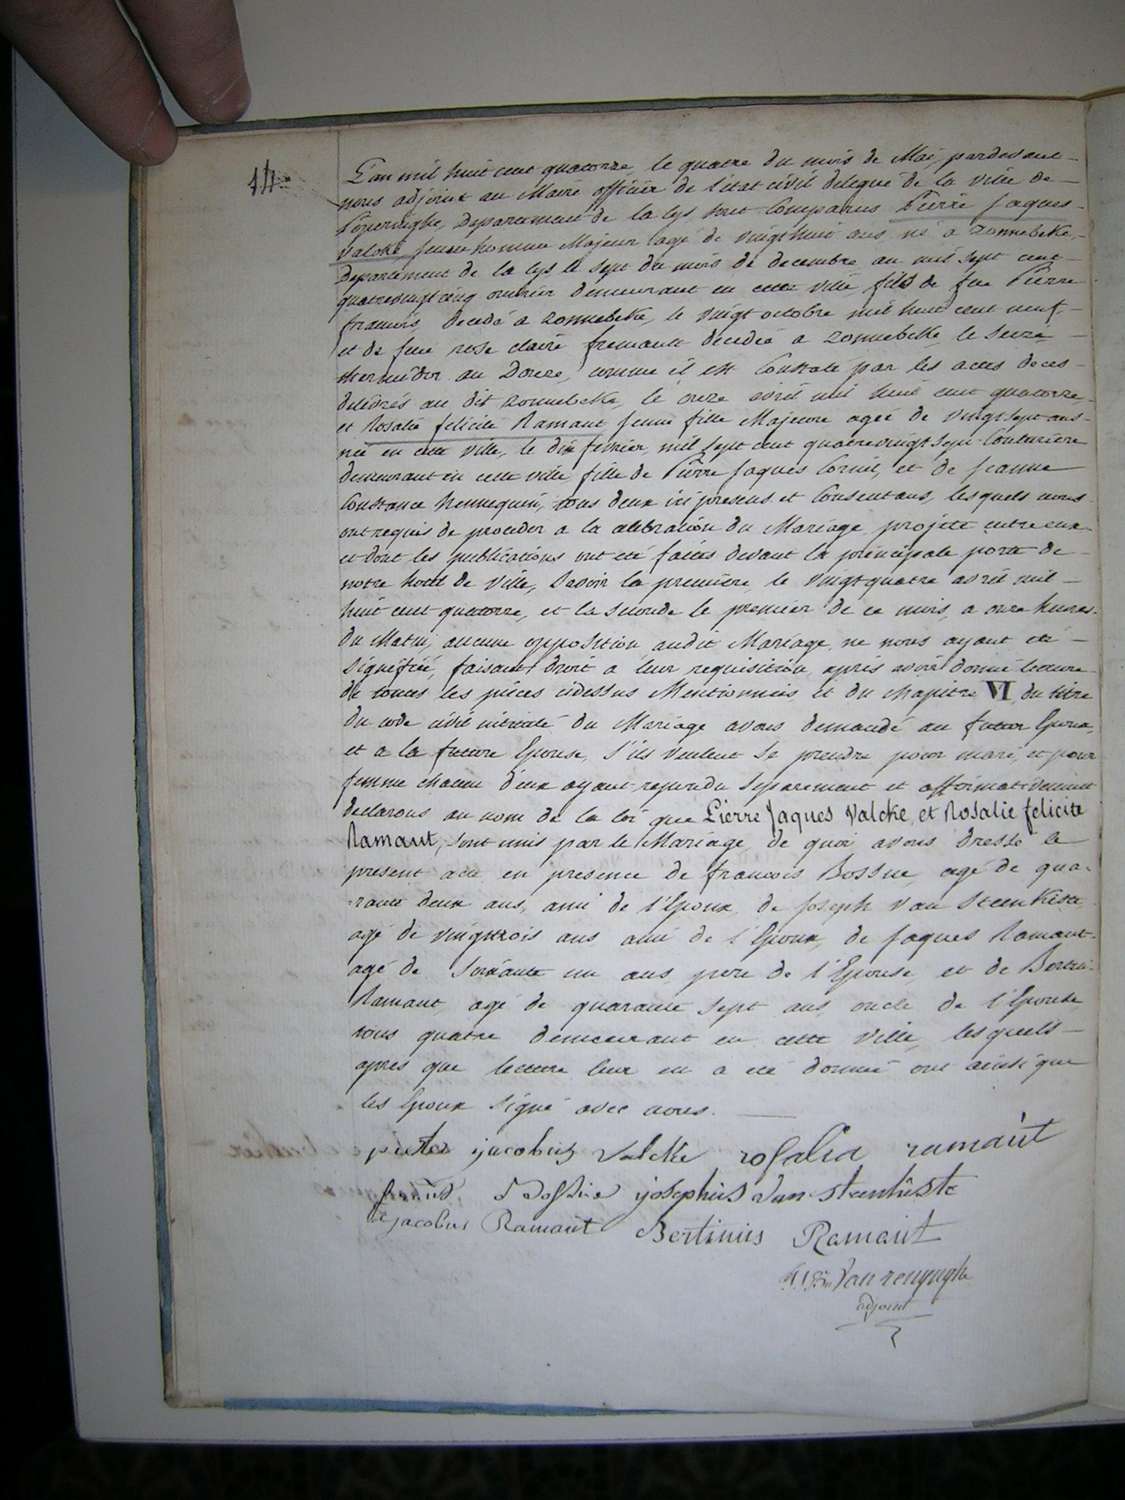 14e
L'an mil huit cent quatorze le quatre du mois de Mai, pardevant
nous adjoint au Maire officier de l'état civil delegué de la ville de
Poperinghe, Departement de la Lys sont Comparus Pierre Jaques
Valcke jeune homme Majeur agé de vingt huit ans né a Zonnebeke,
Departement de la Lys le sept du mois de decembre an mil sept cent
quatrevingt cinq ouvrier demeurant en cette ville fils de feu Pierre
francois, decedé a Zonnebeke, le vingt octobre mil huit cent neuf
et de feue rose claire fremault decedée a Zonnebeke, le seize
thermidor an Douze, comme il est Constaté par les actes deces
delivrés au dit Zonnebeke, le onze avril mil huit cent quatorze
et Rosalie felicite Ramaut jeune fille Majeure agée de vingt sept ans
née en cette ville, le dix fevrier mil sept cent quatrevingt sept Couturiere
demeurant en cette ville fille de Pierre Jaques Cornil, et de Jeanne
Constance hennequin, tous deux ici presens et Consentans, lesquels nous
ont requis de proceder a la celebration du Mariage projetté entre eux
et dont les publications ont eté faites devant la principale porte de
notre hotel de Ville, Savoir la premiere, le vingt quatre avril mil
huit cent quatorze, et la seconde le premier de ce mois, a onze heures
du Matin, aucune opposition audit Mariage ne nous ayant eté
Signifiée, faisant droit a leur requisition, après avoir donné lecture
de toutes les pièces cidessus Mentionnées et du chapitre VI du titre
du code civil intitulé du Mariage avons demandé au futur Epoux,
et a la future Epouse, s'ils veulent se prendre pour mari, et pour
femme chacun d'eux ayant repondu separement et affirmativement
declarons au nom de la loi que Pierre Jaques Valcke, et Rosalie felicite
Ramaut, sont unis par le Mariage, de quoi avons dressé le
present acte en presence de francois Bossue, agé de qua-
rante deux ans, ami de l'Epoux, de Joseph Van Steenkiste
agé de vingttrois ans ami de l'Epoux, de Jaques Ramaut
agé de soixante un ans, pere de l'Epouse, et de Bertin
Ramaut, agé de quarante sept ans oncle de l'Epouse,
tous quatre demeurant en cette Ville, lesquels
après que lecture leur en a eté donnée ont ainsi que
les Epoux signé avec nous.
pieter jacobus Valcke rosalia ramaut
josephus Van steenkiste
jacobus Ramaut Bertinus Ramaut
Van renynghe
adjoint